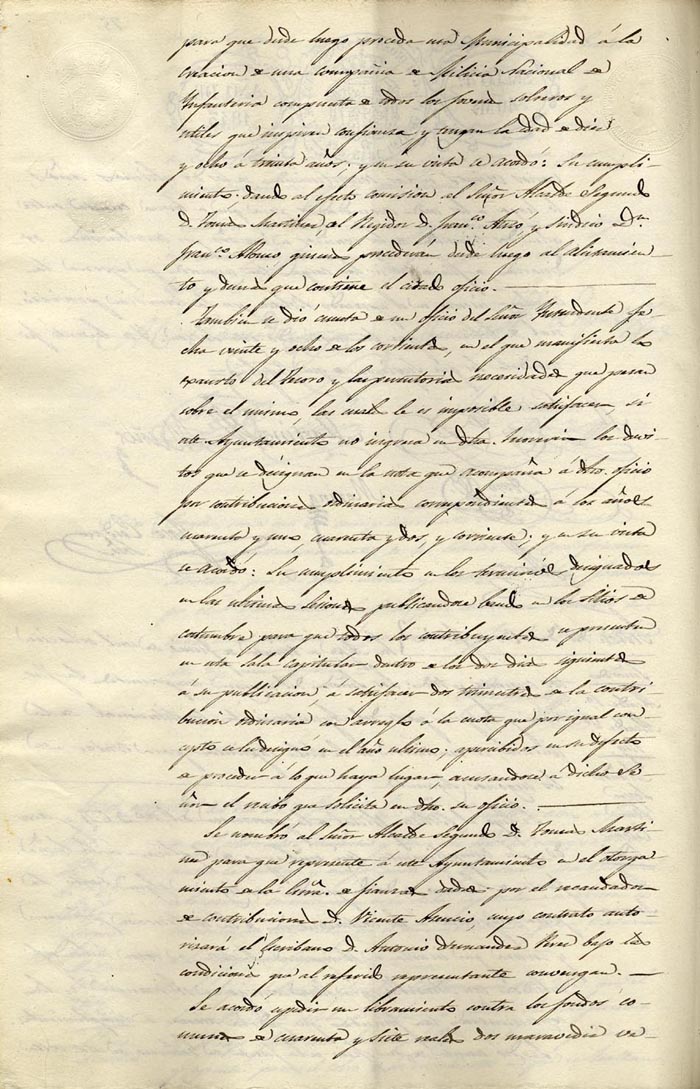 para que desde luego proceda esta Municipalidad á la
creacion de una compañia de Milicia Nacional de
Infanteria compuesta de todos los jovenes solteros y
utiles que inspiren confianza y tengan la edad de diez
y ocho á treinta años; y en su vista se acordó: Su cumpli-
miento dando al efecto comision al Señor Alcalde Segundo
D. Tomas Martinez al Regidor D. Fran.co y Sindico D.n
Fran.co Alonso quienes procederán desde luego al alistamien-
to y demas que contiene el citado oficio.
Tambien se dió cuenta de un oficio del Señor Yntendente fe-
cha veinte y ocho de los corrientes, en el que manifiesta los
apuros del Tesoro y las perentorias necesidades que pesan
sobre el mismo, las cuales le es imposible satisfacer, si
este Ayuntamiento no ingresa en dha. los devi-
tos que se designan en la nota que acompaña á dho. oficio
por contribuciones ordinarias correspondientes á los años
cuarenta y uno, cuarenta y dos, y corriente; y en su vista
se acordó: Su cumplimiento en los terminos designados
en las ultimas sesiones publicandose bando en los sitios de
costumbre para que todos los contribuyentes se presenten
en esta sala capitular dentro de los dos dias siguientes
á su publicacion, á satisfacer dos trimestres de la contri-
bucion ordinaria con arreglo á la cuota que por igual con-
cepto se les designó en el año ultimo; apercibidos en su defecto
de proceder á lo que haya lugar, acusandose á dicho Se-
ñor el recibo que solicita en dho. su oficio.
Se nombró al Señor Alcalde Segundo D. Tomas Marti-
nez para que represente á este Ayuntamiento en el otorga-
miento de la de fianza dada por el recaudador
de contribuciones D. Vicente Asensio, cuyo contrato auto-
rizará el Escribano D. Antonio Hernandez bajo las
condiciones que al referido representante convengan.
Se acordó expedir un libramiento contra los fondos co-
munes de cuarenta y siete reales dos maravedis ve-